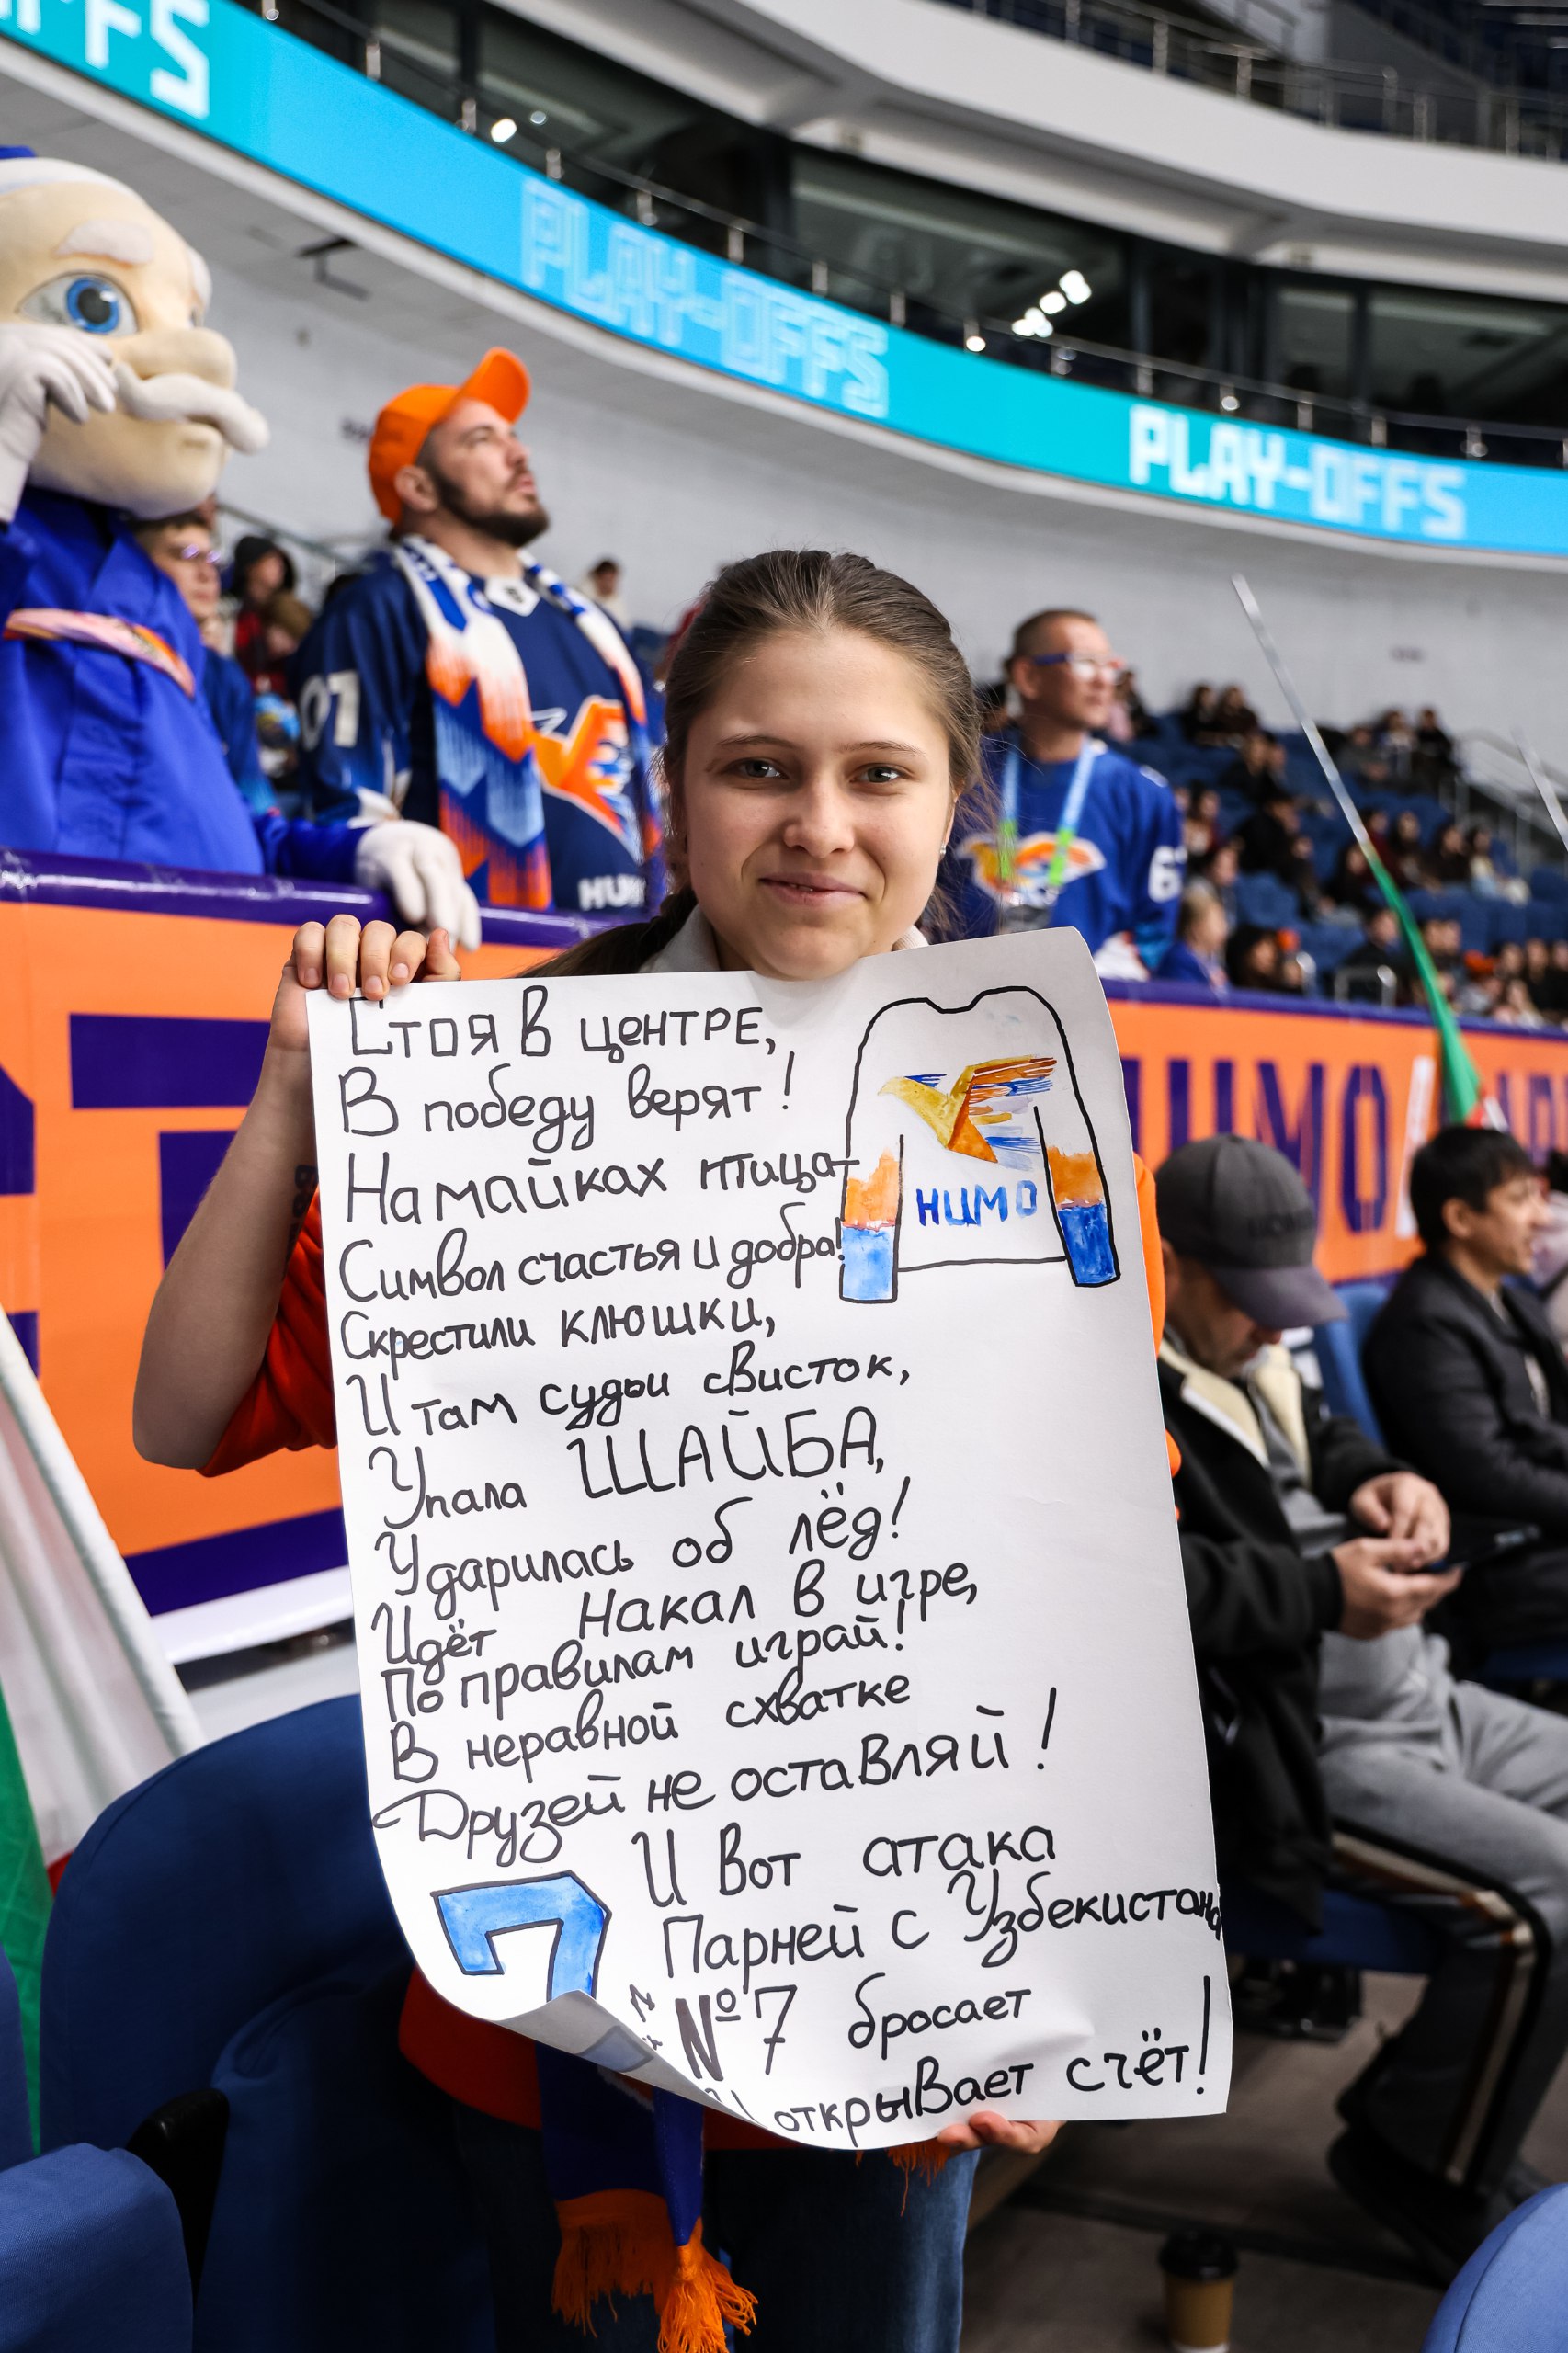 PLAY-OFFS
PLAY-OFFS
01
HUM
Стоя в центре,
В победу верят!
На майках птица-
Символ счастья и добра!
HUMO
Скрестили клюшки,
И там судьи свисток,
Упала ШАЙБА,
Ударилась об лёд!
Идёт Накал в игре,
По правилам играй!
В неравной схватке
Друзей не оставляй!
И вот атака
Парней с Узбекистана
7
№7 бросает
И открывает счёт!
HUMO